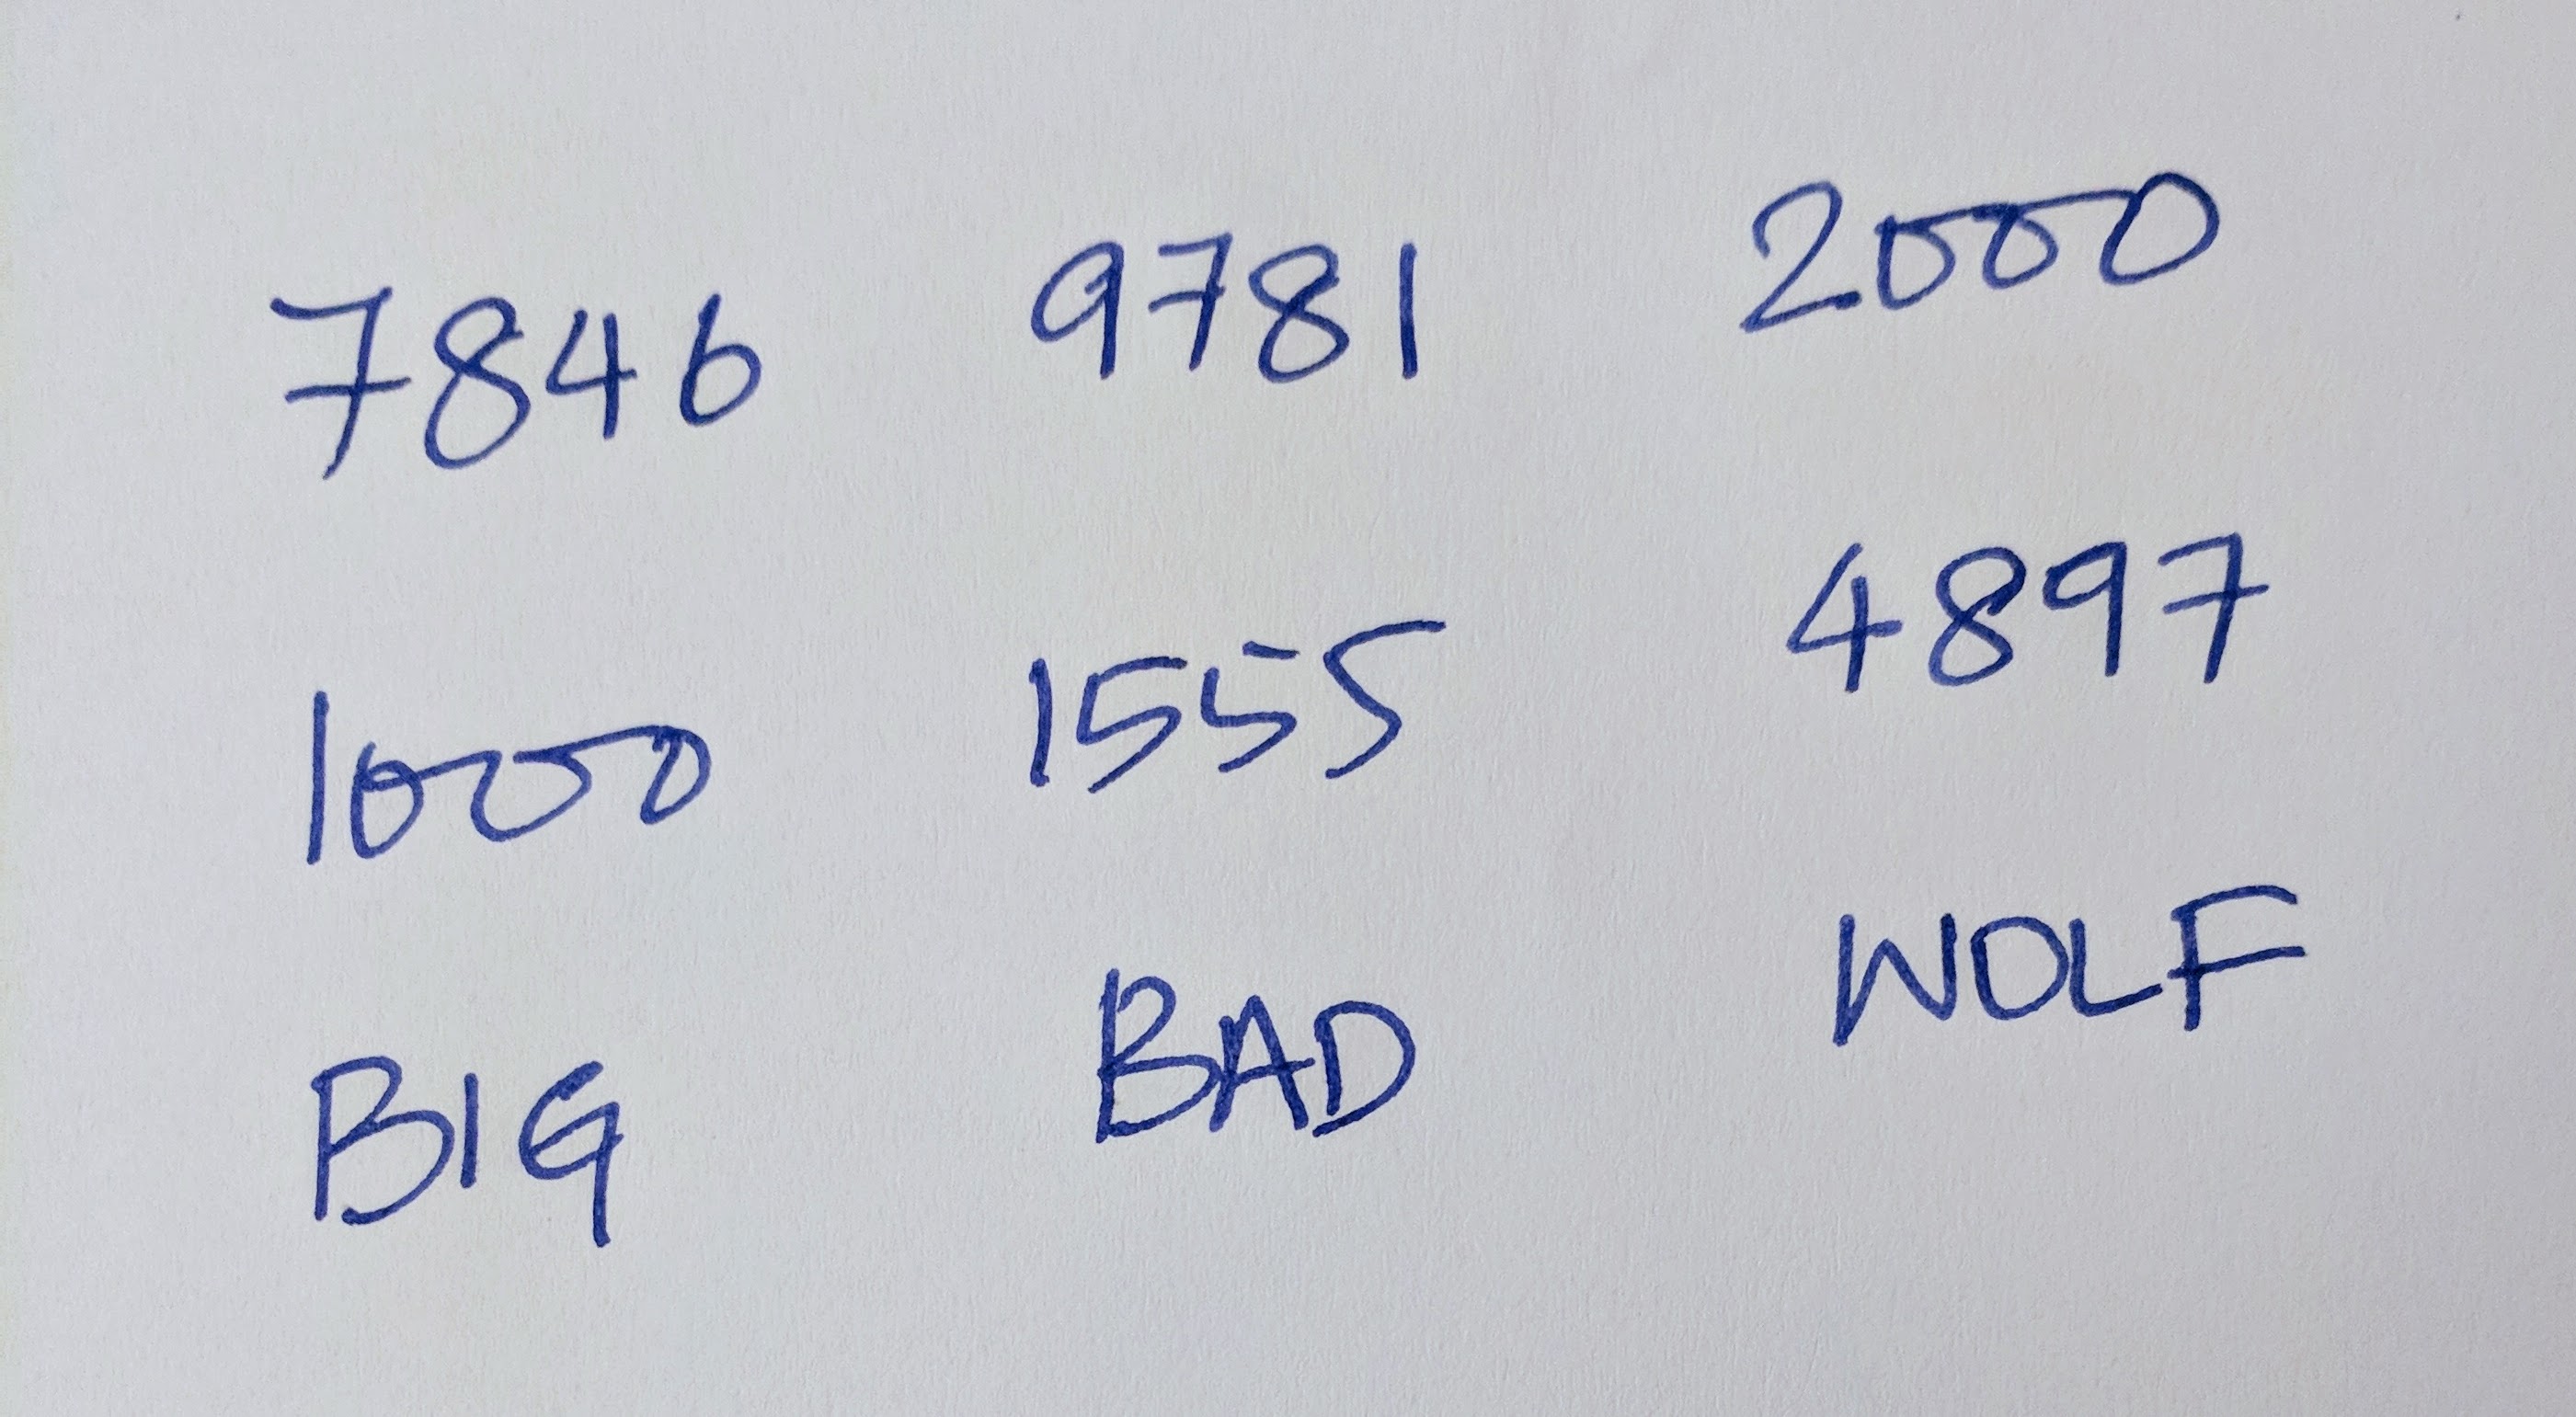 7846 9781 2000
1000 1555 4897
BIG BAD WOLF